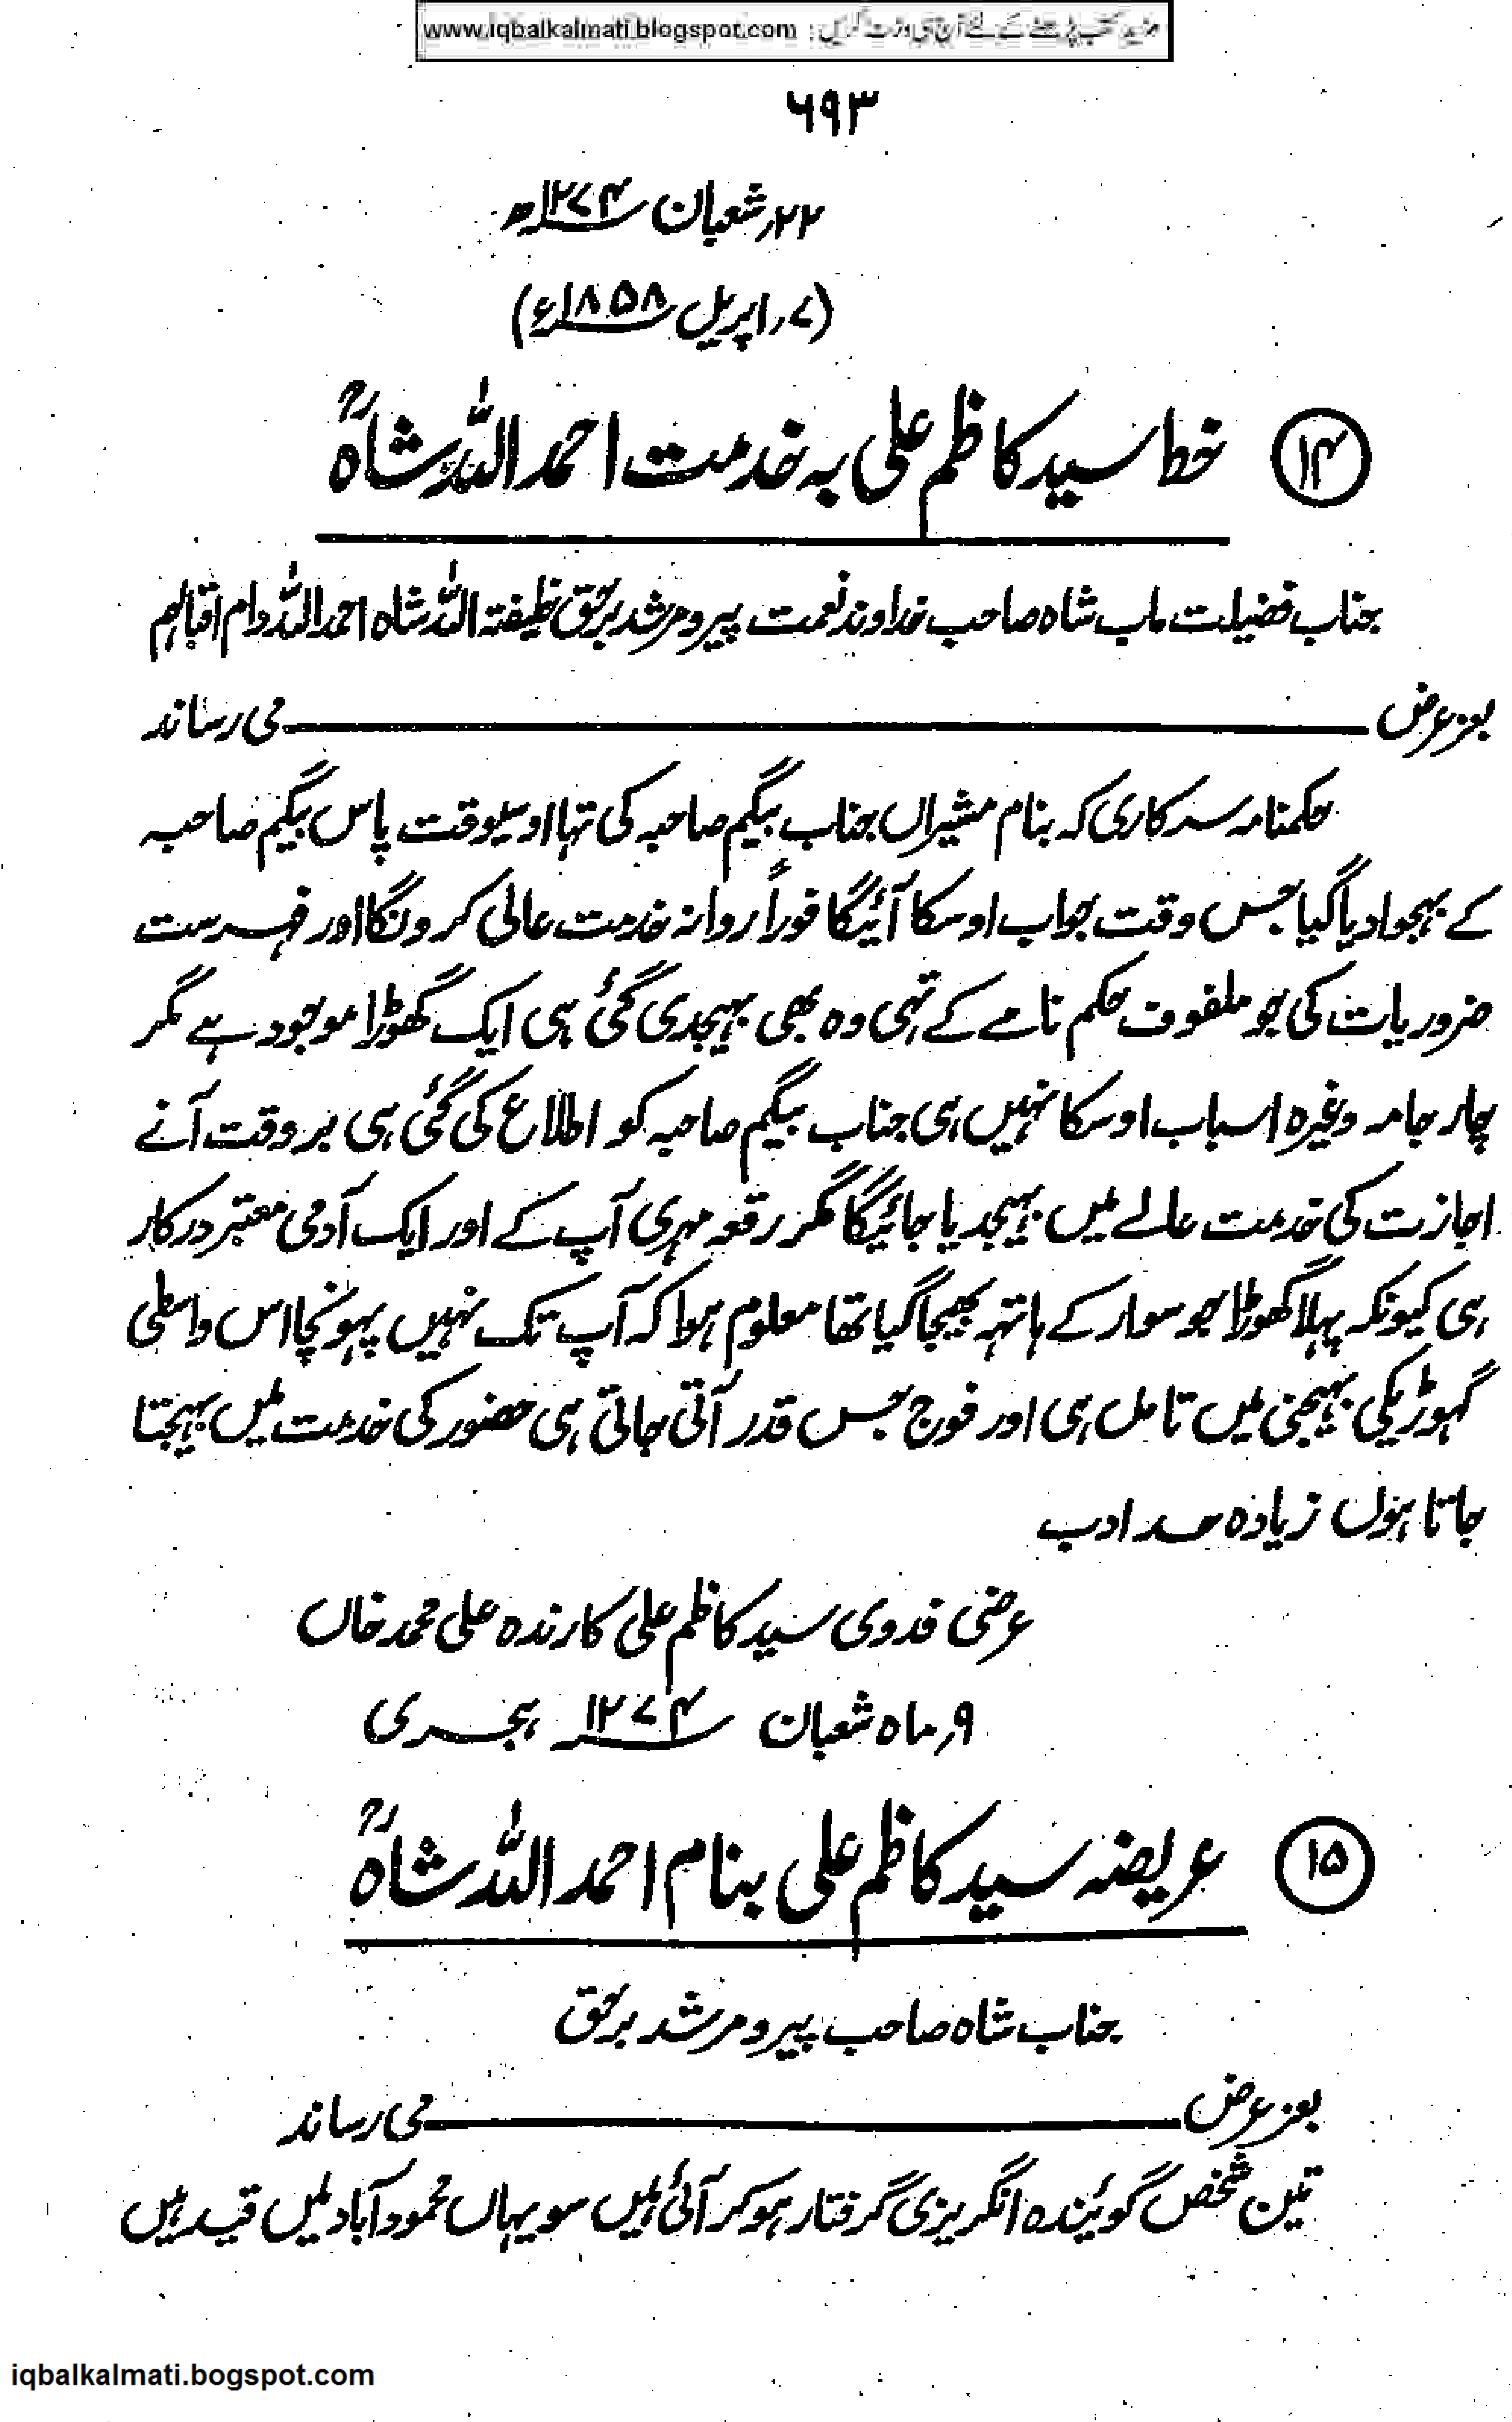 مزید کتب پڑھنے کے لئے آج ہی وزٹ کریں : www.iqbalkalmati.blogspot.com
۶۹۳
۲۲؍شعبان ۱۲۷۴ھ
(۷؍اپریل ۱۸۵۸ء)
۱۴ خط سید کاظم علی بہ خدمت احمد اللہ شاہؒ
جناب فضیلت ماب شاہ صاحب خداوند نعمت پیر و مرشد برحق خلیفۃ اللہ شاہ احمد اللہ دام اقبالہم
بعز عرض ـــــــــ می رساند
حکمنامہ سرکاری کہ بنام مشیراں جناب بیگم صاحبہ کی تہا اوسیوقت پاس بیگم صاحبہ
کے بہجوا دیا گیا جس وقت جواب اوسکا آئیگا فوراً روانہ خدمت عالی کرونگا اور فہرست
ضروریات کی جو ملفوف حکم نامے کے تہی وہ بھی بہیجدی گئی ہی ایک گھوڑا موجود ہے مگر
چار جامہ وغیرہ اسباب اوسکا نہیں ہی جناب بیگم صاحبہ کو اطلاع کی گئی ہی بر وقت آنے
اجازت کی خدمت عالے میں بہیجدیا جائیگا مگر رقعہ مہری آپ کے اور ایک آدمی معتبر درکار
ہی کیونکہ پہلا گھوڑا جو سوار کے ہاتہہ بھیجا گیا تھا معلوم ہوا کہ آپ تک نہیں پہونچا اس واسطی
گہوڑیکی بہیجنی میں تامل ہی اور فوج جس قدر آتی جاتی ہی حضور کی خدمت میں بہیجتا
جاتا ہوں زیادہ حد ادب
عرضی فدوی سید کاظم علی کارندہ علی محمد خاں
۹؍ماہ شعبان ۱۲۷۴ ہجری
۱۵ عریضہ سید کاظم علی بنام احمد اللہ شاہؒ
جناب شاہ صاحب پیر و مرشد برحق
بعز عرض ـــــــــ می رساند
تین شخص گوئندہ انگریزی گرفتار ہو کر آئی ہیں سو یہاں محمود آباد میں قید ہیں
iqbalkalmati.bogspot.com